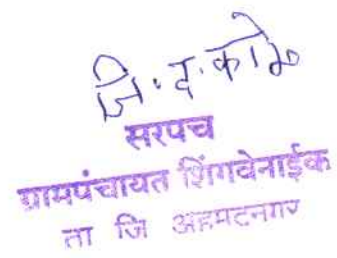 जि. द. का
सरपच
ग्रामपंचायत शिंगवेनाईक
ता जि अहमदनगर